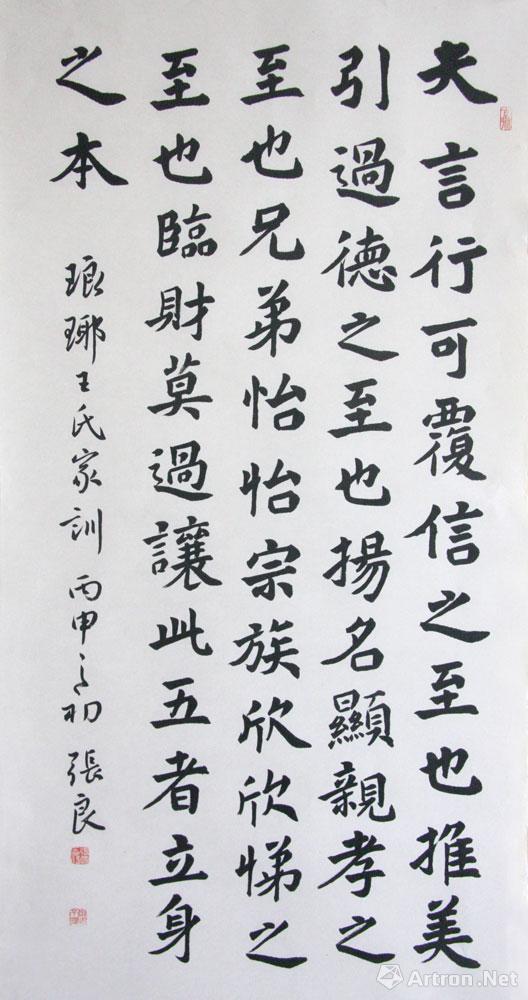 夫言行可覆信之至也推美
引過德之至也揚名顯親孝之
至也兄弟怡怡宗族欣欣悌之
至也臨財莫過讓此五者立身
之本
琅琊王氏家訓 丙申之初 張良
Artron.Net